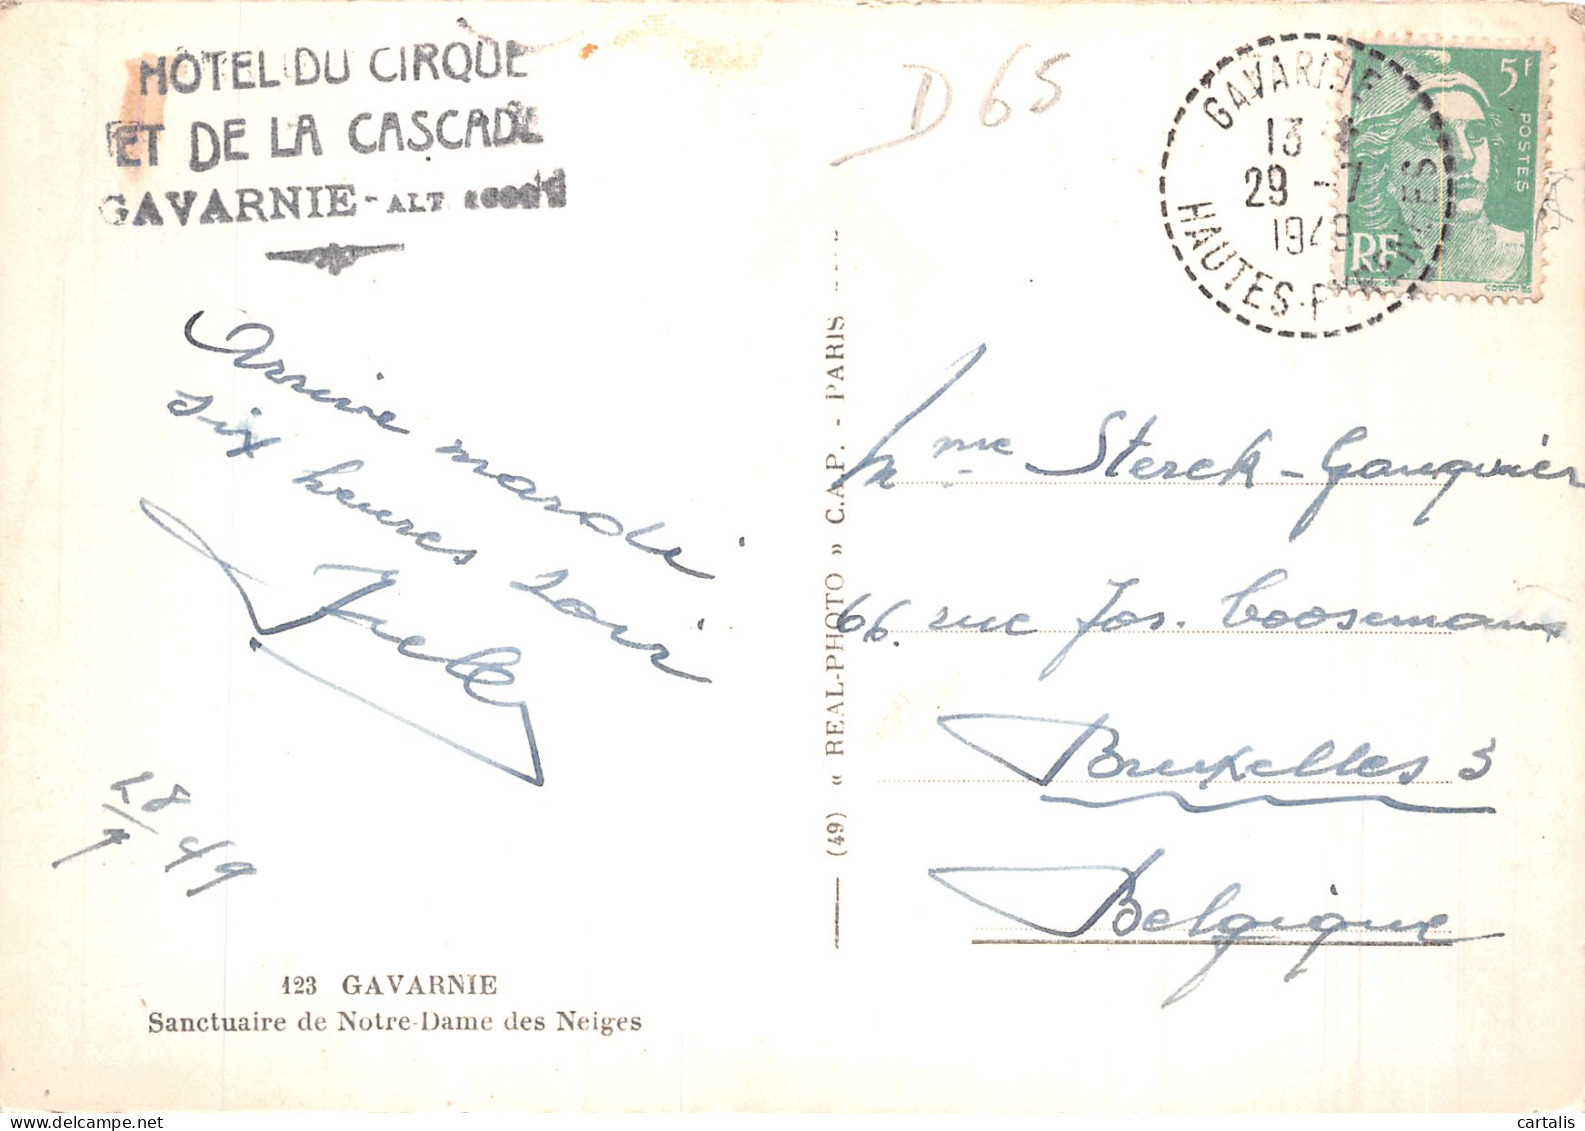 HÔTEL DU CIRQUE
ET DE LA CASCADE
GAVARNIE - ALT
D 65
GAVARNIE
13
29 -7
1949
HAUTES-PYRÉNÉES
5F
POSTES
RF
Arrive mardi
six heures soir
28/7 49
123 GAVARNIE
Sanctuaire de Notre-Dame des Neiges
(49) « REAL-PHOTO » C.A.P. - PARIS
Mme Sterck-Gauquier
66 rue Jos. Coosemans
Bruxelles 3
Belgique
cartalis
www.delcampe.net